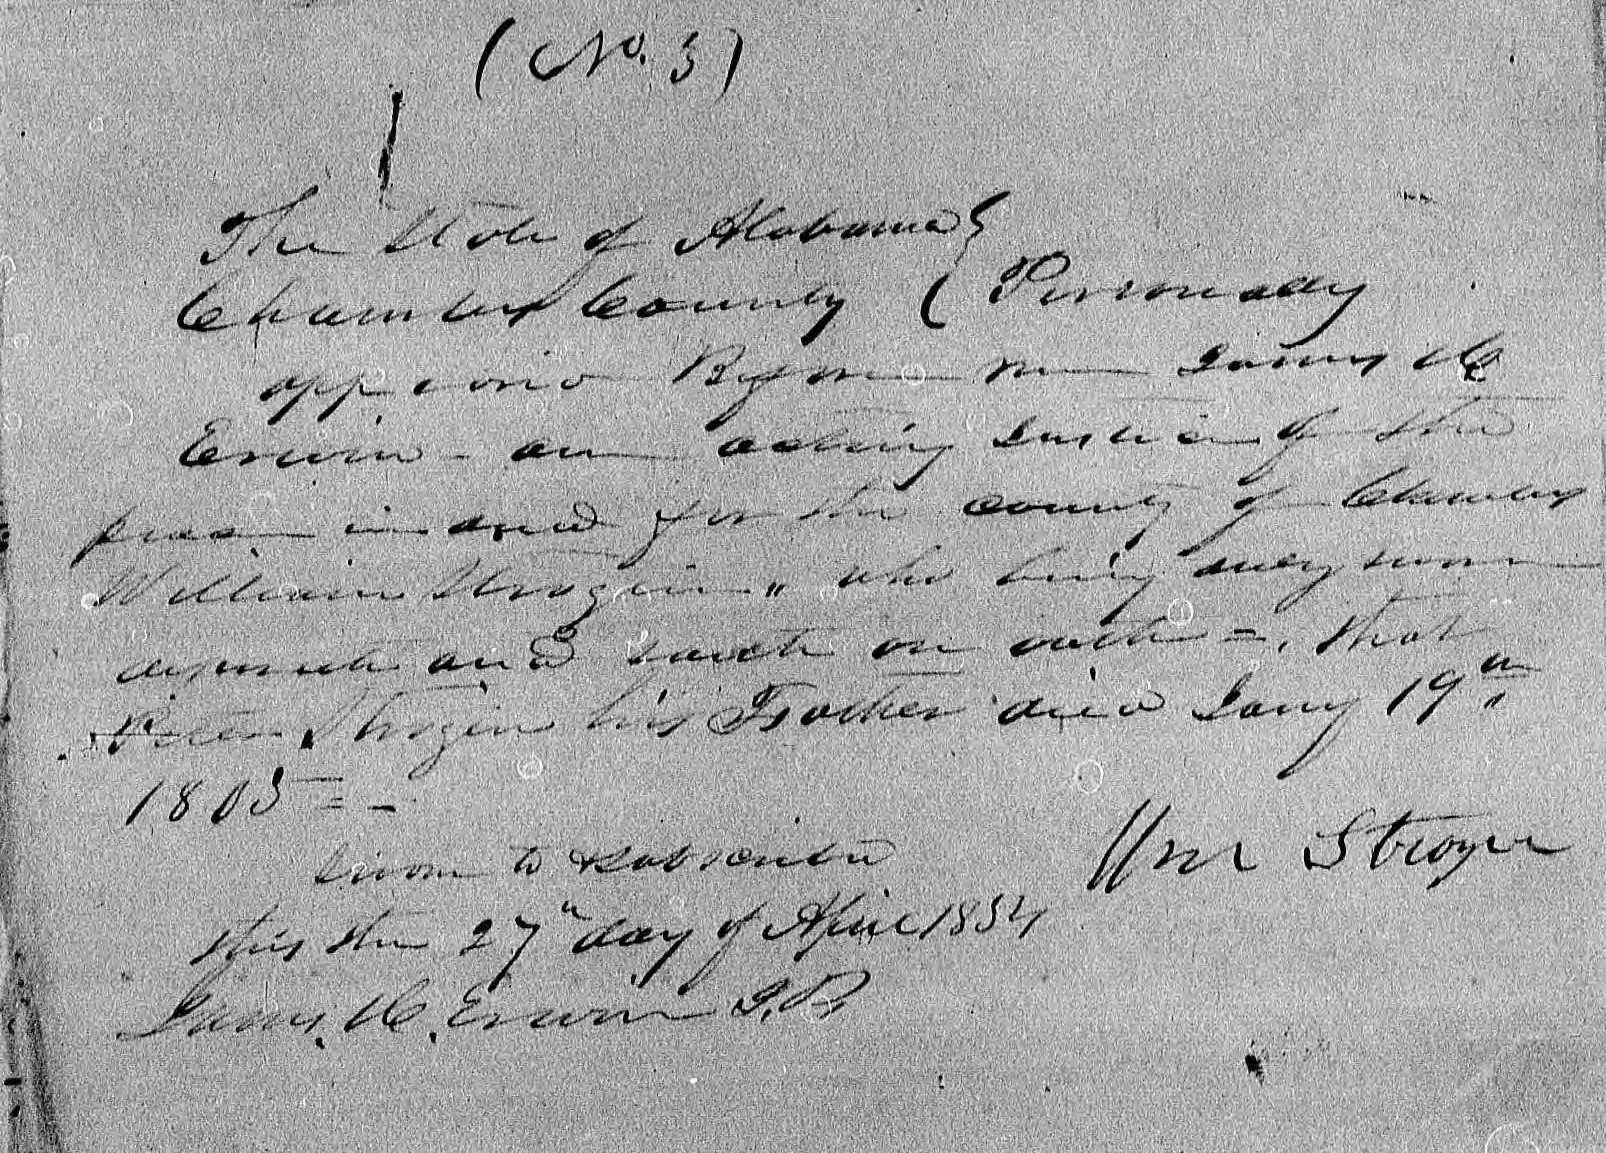 (No. 3)
The State of Alabama }
Chambers County ( Personally
appeard Before me James H
Erwin - an acting Justice of the
peace in and for the county of Chambers
William Strozier " who being duly sworn
deposeth and saith on oath =, that
Peter Strozier his Father died Jany 19th
1805 = -
Sworn to & subscribed
this the 27th day of April 1854
Wm Strozier
James. H. Erwin J.P